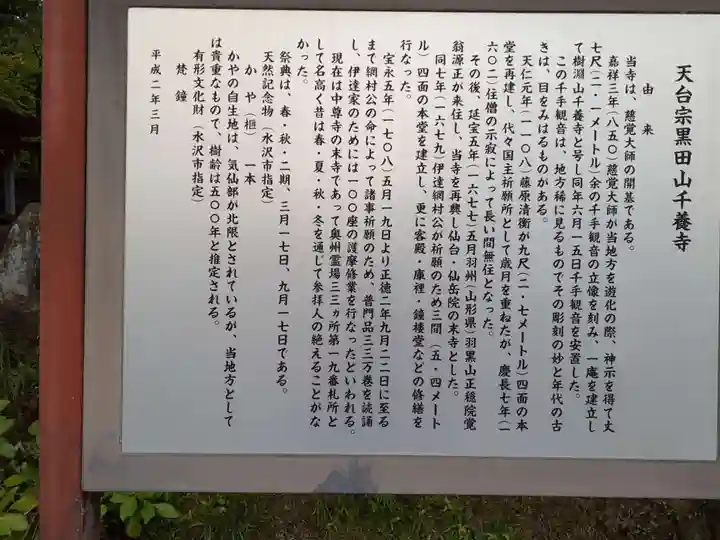 天台宗黒田山千養寺
由来
当寺は、慈覚大師の開基である。
嘉祥三年(八五〇)慈覚大師が当地方を遊化の際、神示を得て丈
七尺(二・一メートル)余の千手観音の立像を刻み、一庵を建立し
て樹淵山千養寺と号し同年六月一五日千手観音を安置した。
この千手観音は、地方稀に見るものでその彫刻の妙と年代の古
きは、目をみはるものがある。
天仁元年(一一〇八)藤原清衡が九尺(二・七メートル)四面の本
堂を再建し、代々国主祈願所として歳月を重ねたが、慶長七年(一
六〇二)住僧の示寂によって長い間無住となった。
その後、延宝五年(一六七七)五月羽州(山形県)羽黒山正穏院覚
翁源正が来住し、当寺を再興し仙台・仙岳院の末寺とした。
同七年(一六七九)伊達綱村公が祈願のため三間(五・四メート
ル)四面の本堂を建立し、更に客殿・庫裡・鐘楼堂などの修繕を
行なった。
宝永五年(一七〇八)五月一九日より正徳二年九月二二日に至る
まで綱村公の命によって諸事祈願のため、普門品三三万巻を読誦
し、伊達家のためには一〇〇座の護摩修業を行なったといわれる。
現在は中尊寺の末寺であって奥州霊場三三ヵ所第一九番札所と
して名高く昔は春・夏・秋・冬を通じて参拝人の絶えることがな
かった。
祭典は、春・秋・二期、三月一七日、九月一七日である。
天然記念物(水沢市指定)
かや(榧)一本
かやの自生地は、気仙部が北限とされているが、当地方として
は貴重なもので、樹齢は五〇〇年と推定される。
有形文化財(水沢市指定)
梵鐘
平成二年三月